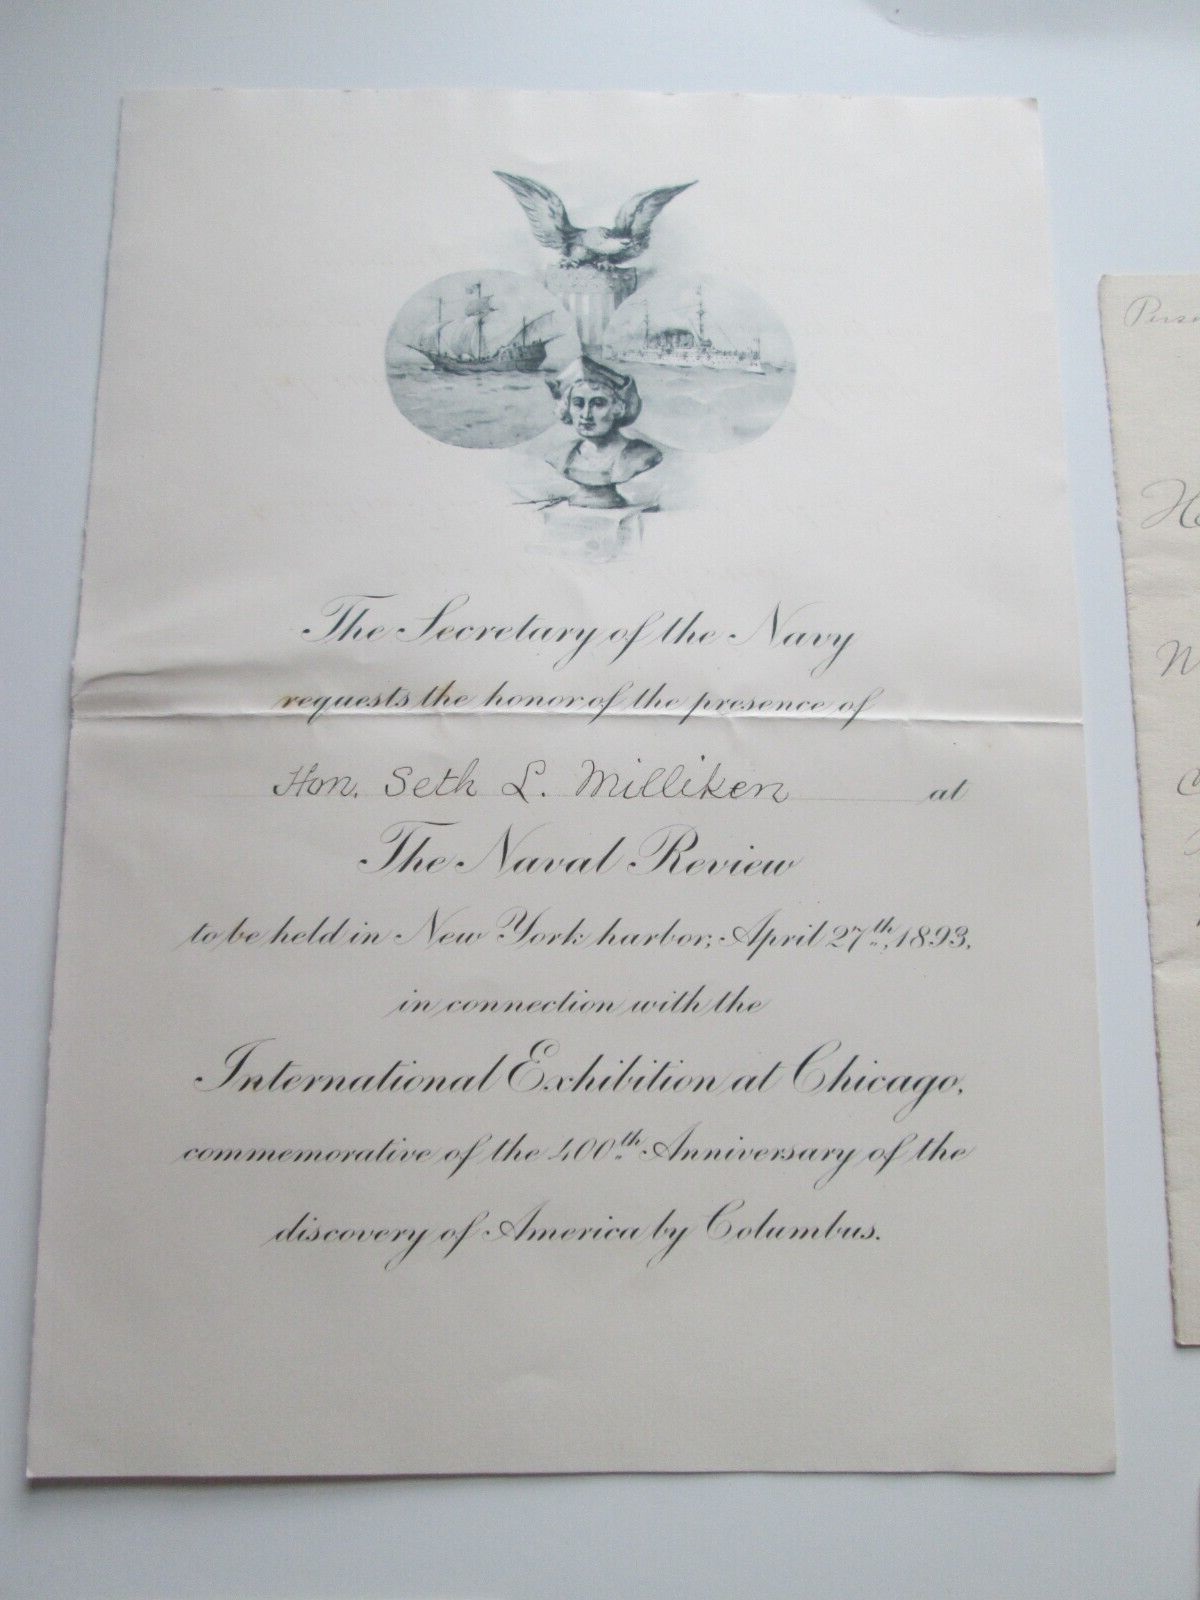 The Secretary of the Navy
requests the honor of the presence of
Hon. Seth L. Milliken at
The Naval Review
to be held in New York harbor, April 27th, 1893,
in connection with the
International Exhibition at Chicago,
commemorative of the 400th Anniversary of the
discovery of America by Columbus.